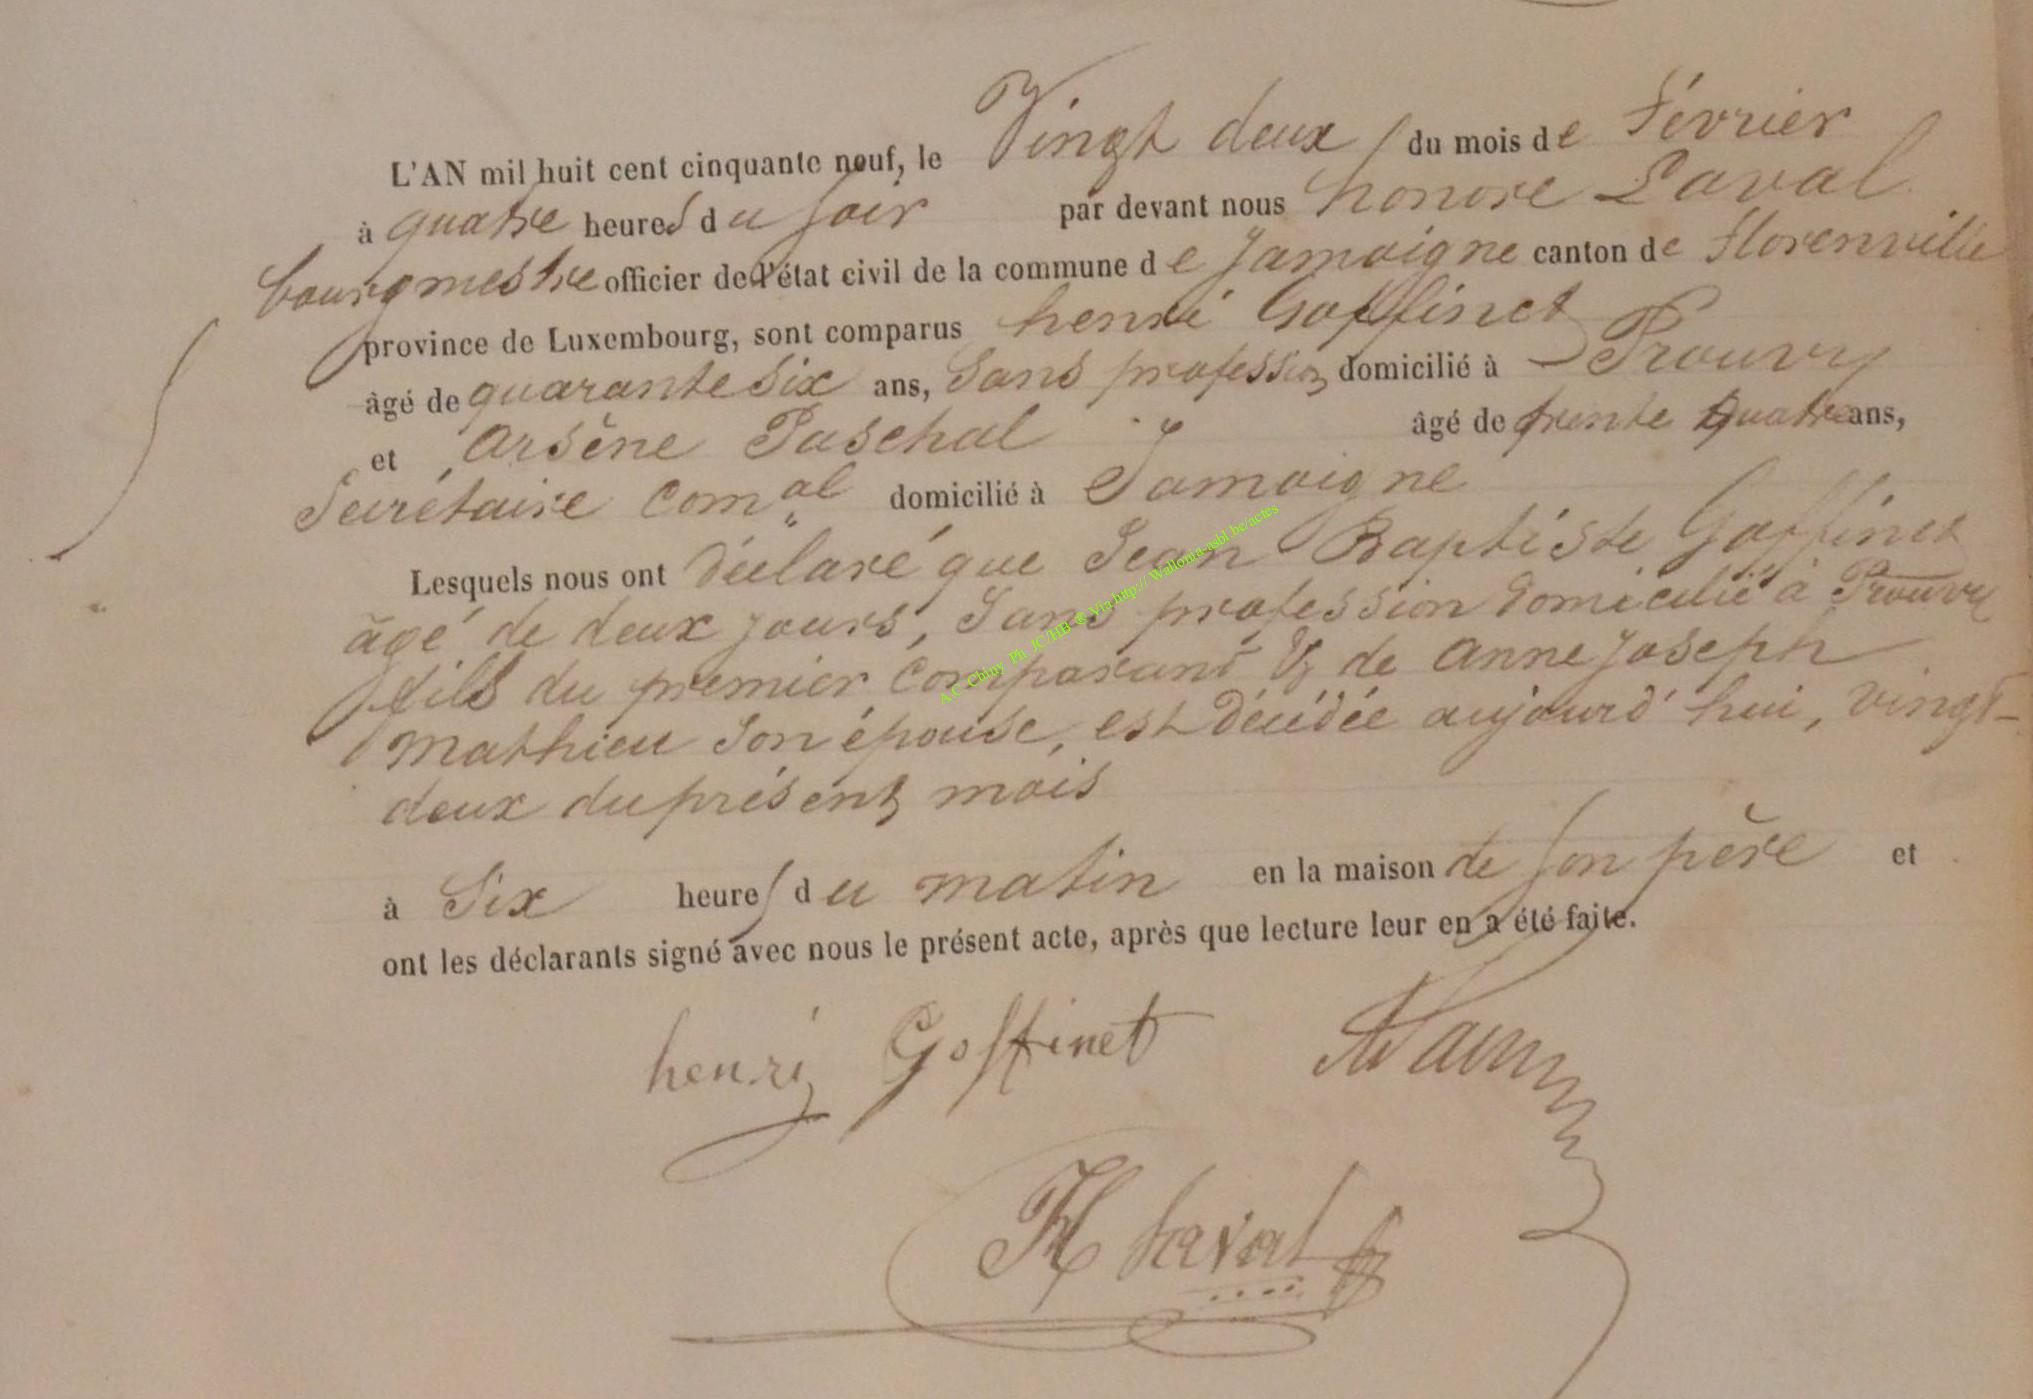 L'AN mil huit cent cinquante neuf, le Vingt deux du mois de Février
à quatre heures du soir par devant nous honore Laval
bourgmestre officier de l'état civil de la commune de Jamoigne canton de Florenville
province de Luxembourg, sont comparus henri Goffinet
âgé de quarante six ans, Sans profession domicilié à Prouvy
et Arsène Paschal âgé de trente quatre ans,
Secrétaire Com.al domicilié à Jamoigne
Lesquels nous ont déclaré que Jean Baptiste Goffinet
âgé de deux jours, Sans profession domicilié à Prouvy
fils du premier Comparant & de Anne Joseph
Mathieu Son épouse, est décédée aujourd'hui, vingt-
deux du présent mois
à Six heures du matin en la maison de son père et
ont les déclarants signé avec nous le présent acte, après que lecture leur en a été faite.
henri Goffinet
H Laval
A.C. Chiny Ph JC/HB ® Via http:// Wallonia-asbl.be/actes